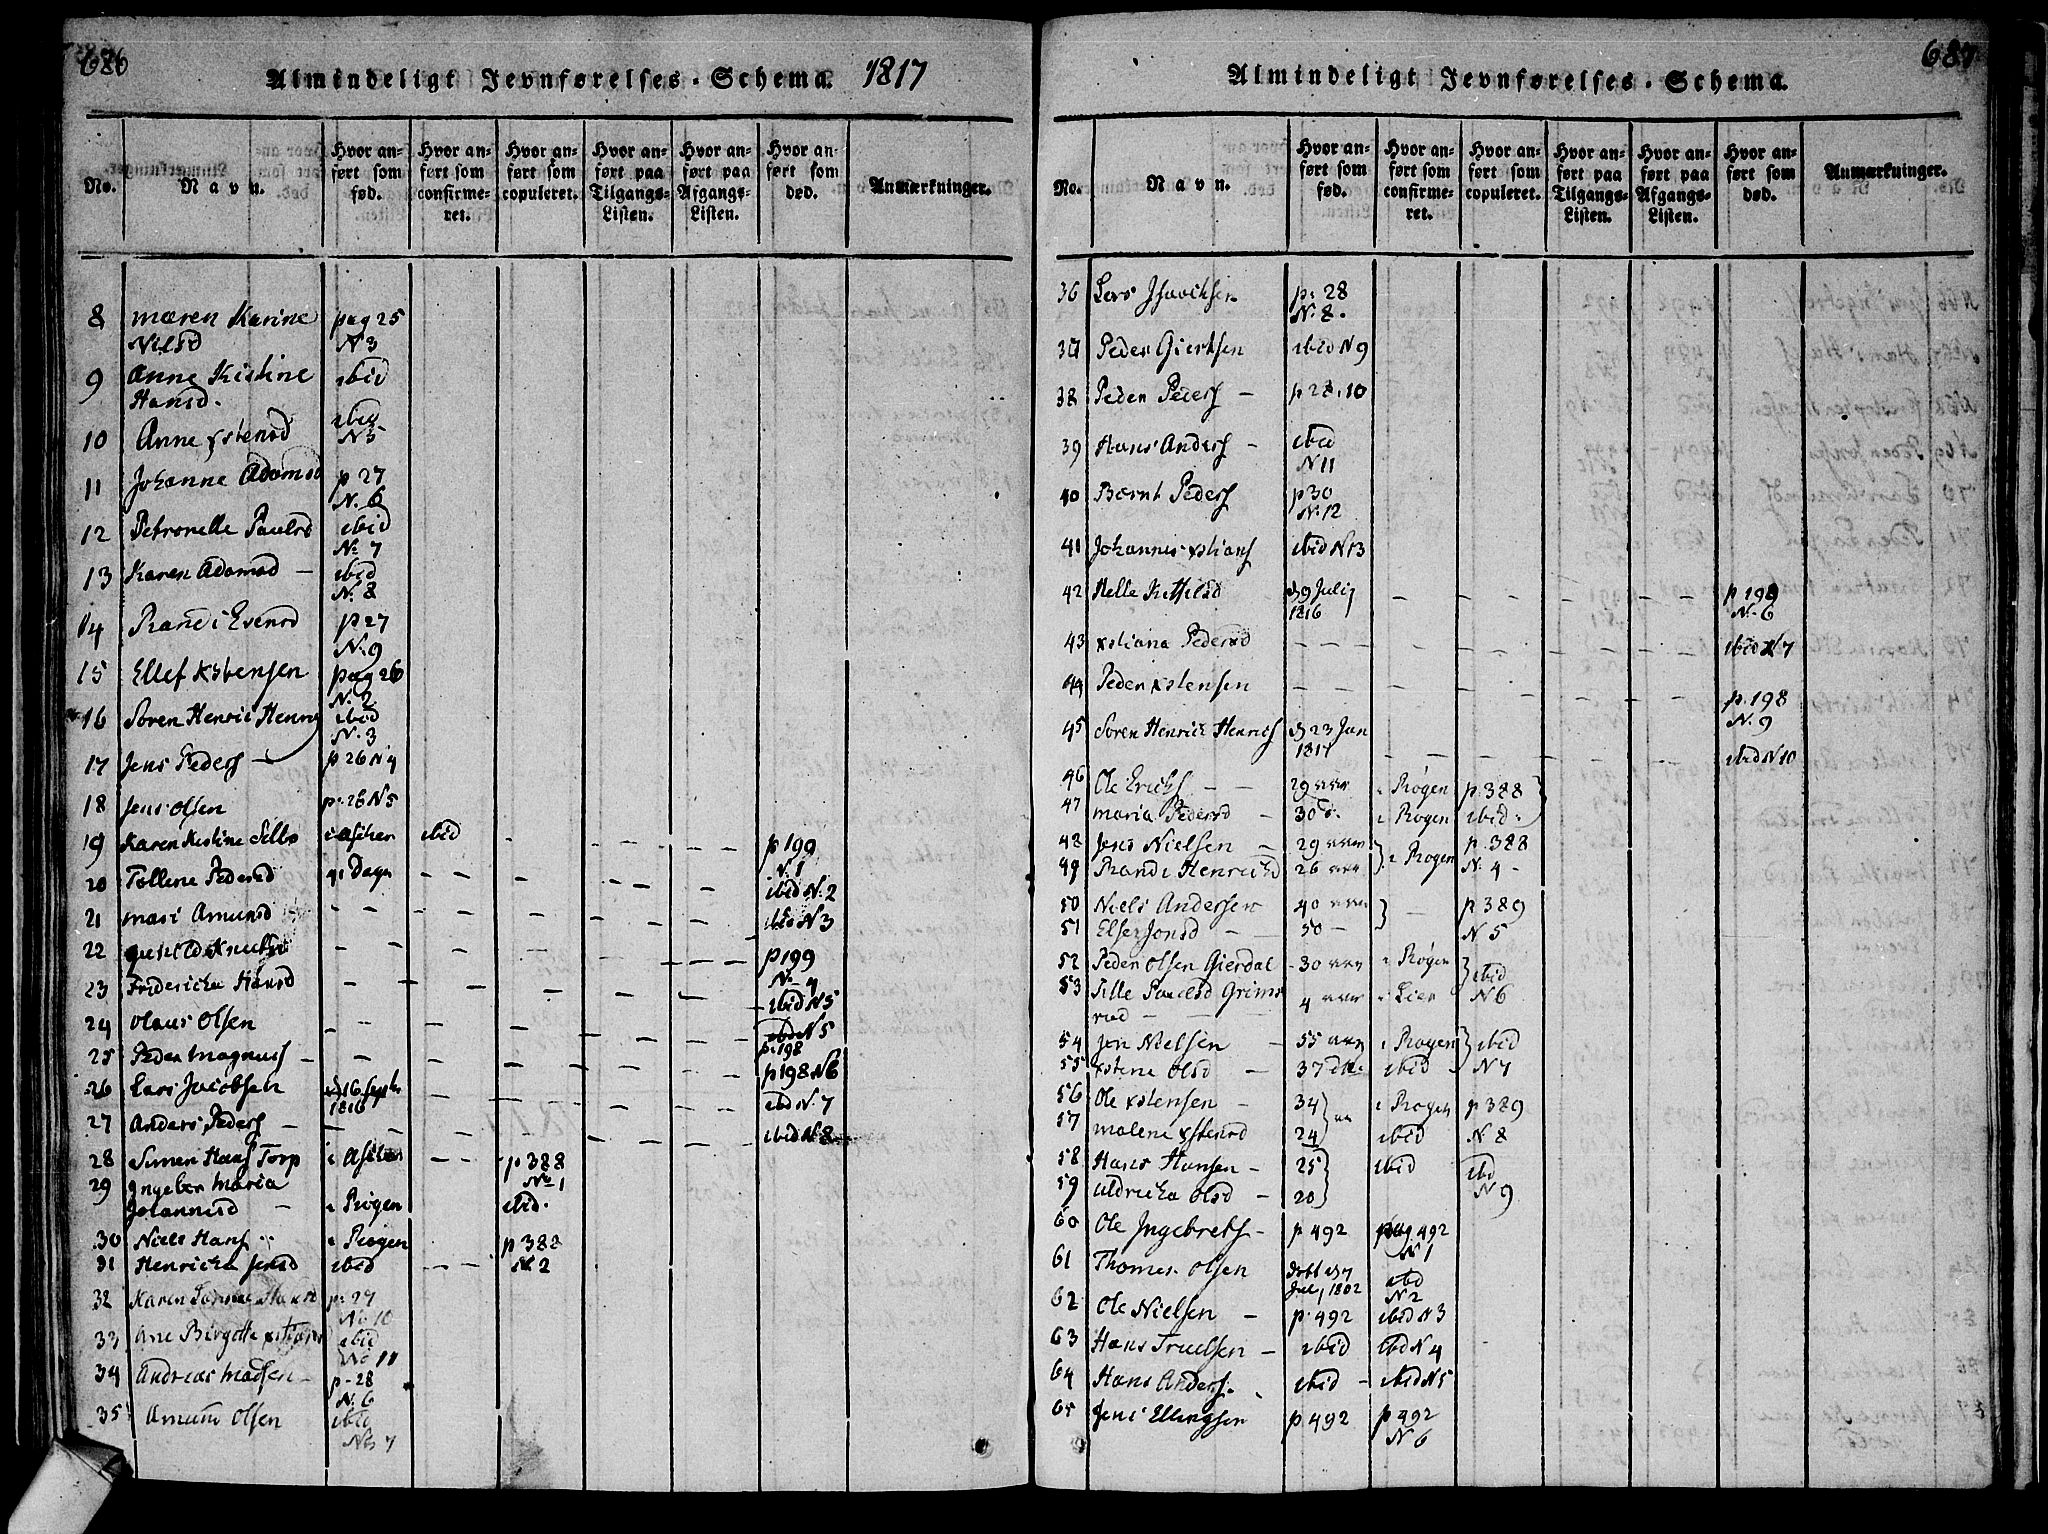 686
Almindeligt Jevnførelses-Schema. 1817
No.
Navn.
Hvor anført som fød.
Hvor anført som confirmeret.
Hvor anført som copuleret.
Hvor anført paa Tilgangs-Listen.
Hvor anført paa Afgangs-Listen.
Hvor anført som død.
Anmærkninger.
8 Maren Karine pag 25
Nilsd N 3
9 Anne Kistine ibid
Hansd.
10 Anne xstensd ibid N 5
11 Johanne Adamsd p 27
N. 6
12 Petronelle Paulsd ibid
No 7
13 Karen Adamsd — ibid
N. 8
14 Randi Evensd p 27
N. 9
15 Ellef Xstensen pag 26
N. 2
16 Søren Henric Henrics ibid
N. 3
17 Jens Peders — p 26 N 4
18 Jens Olsen p. 26 N 5
19 Karen Kistine i Asker ibid - - - p 199
N. 1
20 Tollene Pedersd 4 Dage - - - - ibid N. 2
21 Mari Amundsd - - - - - ibid N 3
22 Gunild Knudsd - - - - - p 199
N. 4
23 Fridericka Hansd - - - - - ibid N 5
24 Olaus Olsen - - - - - ibid N 5
p. 198
25 Peder Magnus — - - - - - p 198 N 6
26 Lars Jacobsen d 16 Septb
1816 - - - - ibid N. 7
27 Anders Peders — - - - - - ibid N. 8
28 Simen Hans Torp i Asker - - p 388
No 1
29 Ingebor Maria
Johannesd — i Røgen ibid.
30 Niels Hans i Røgen p 388
31 Henricka Jensd ibid - - N. 2
32 Karen Hansd p. 27
No 10
33 Ane Birgitte ibid
No 11
34 Andreas Madsen - p. 28
N. 6
35 Amund Olsen ibid
No 7
687
Almindeligt Jevnførelses-Schema.
No.
Navn.
Hvor anført som fød.
Hvor anført som confirmeret.
Hvor anført som copuleret.
Hvor anført paa Tilgangs-Listen.
Hvor anført paa Afgangs-Listen.
Hvor anført som død.
Anmærkninger.
36 Lars p. 28
N. 8.
37 Peder Giertsen ibid N 9
38 Peder Peders — p 28. 10
39 Hans Anders — ibid
N 11
40 Bernt Peders p 30
N. 12
41 Johannes xstians ibid N 13
42 Helle Kittilsd d 9 Julij
1816 - - - - p 198
N. 6
43 xstiana Pedersd - - - - - ibid N 7
44 Peder xstensen - - - - - p. 198
N. 9
45 Søren Henrick Henrics d 23 Jan
1817 - - - - ibid N 10
46 Ole Erichs — 29 aar i Røgen p. 388
47 Maria Pedersd — 30 d. i Røgen ibid.
48 Jens Nielsen — 29 aar i Røgen p. 388
49 Randi Henricsd 26 aar N. 4 -
50 Niels Andersen 40 aar — p 389
51 Else Jonsd — 30 — N 5
52 Peder Olsen Gierdal 30 aar i Røgen ibid
53 Paulsd Grims
rud — aar i Lier N 6
54 Nielsen — 55 aar i Røgen ibid
55 xstine Olsd — 37 do ibid N 7
56 Ole xstensen — 34 aar i Røgen p 389
57 Malene xstensd 24 ibid N 8
58 Hans Hansen — 25 ibid ibid
59 Uldricka Olsd — 20 N 9
60 Ole Ingebrets — p 492 pag 492
N 1
61 Thomas Olsen døbt d 7
Jul, 1802 ibid
N 2
62 Ole Nielsen — p. 492 ibid N 3
63 Hans Truelsen — ibid ibid N 4
64 Hans Anders. ibid - ibid N 5
65 Jens Ellingsen p. 492 p 492
N 6